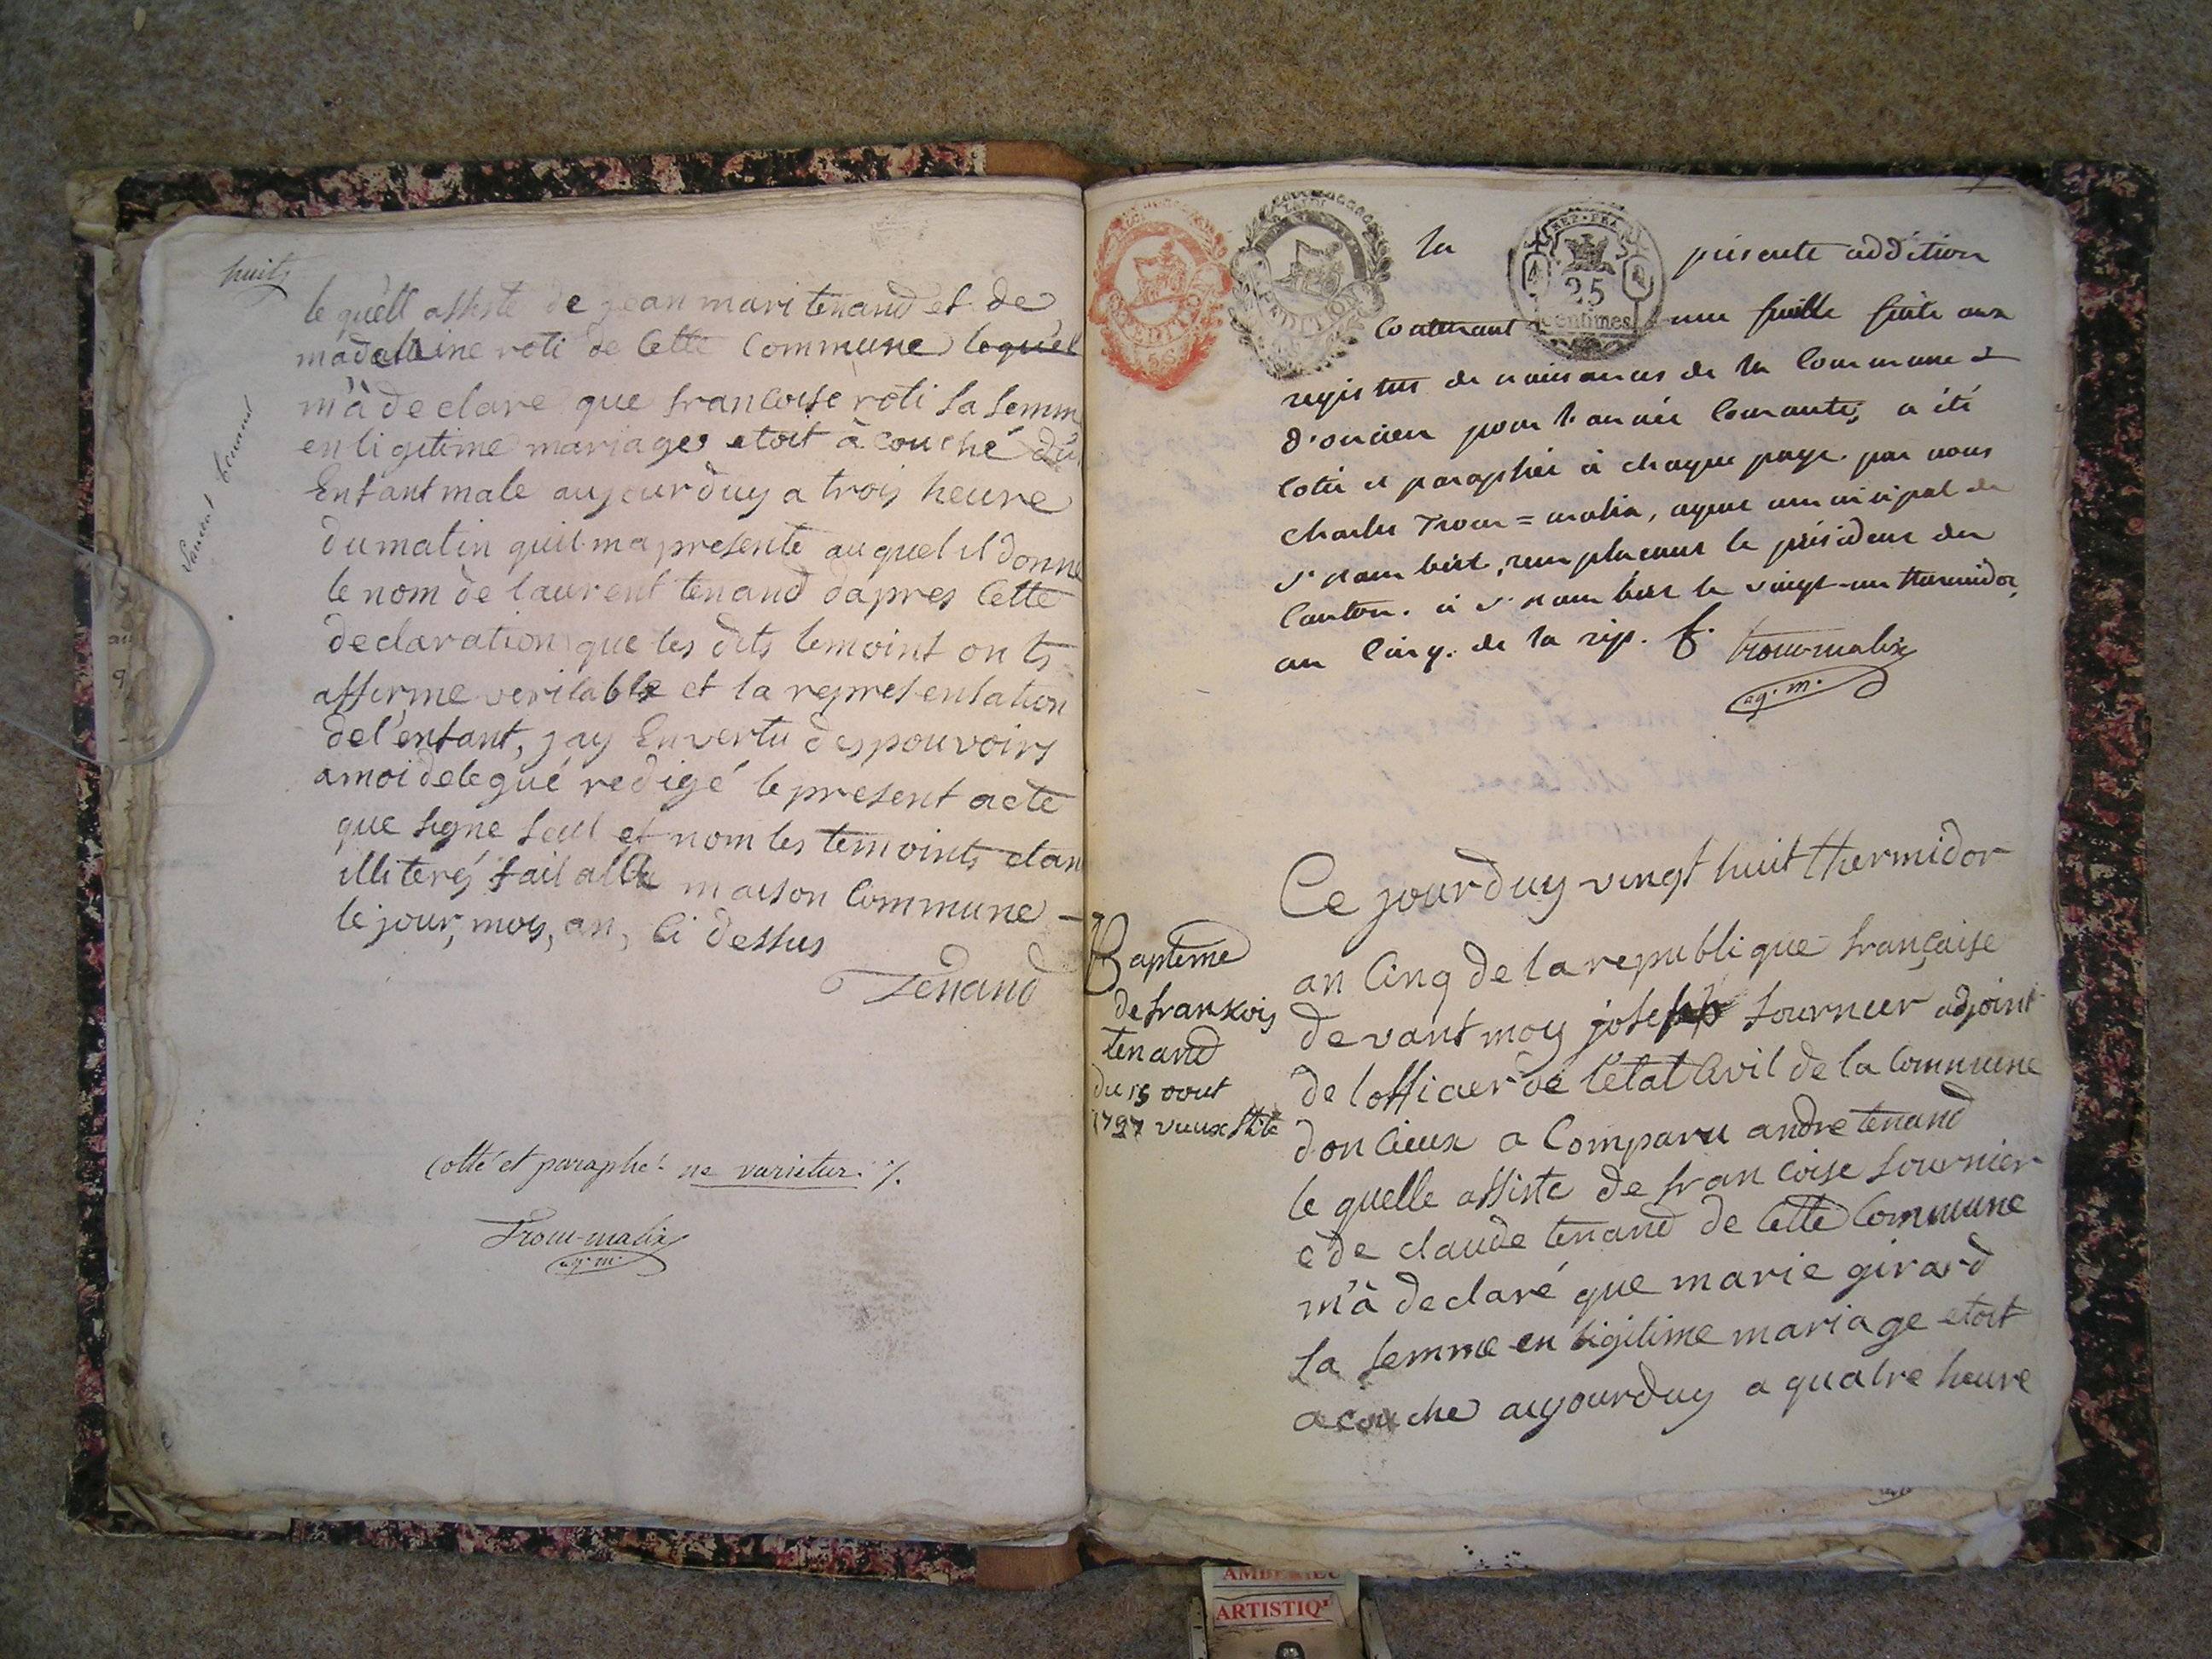 huit
laurent tenand
le quell assiste de jean mari tenand et de
madelleine roti de cette commune lequel
m'à declare que francoise roti sa femme
en ligitime mariage etoit à couché du
Enfant male aujourduy a trois heure
du matin quil ma presente auquel il donne
le nom de laurent tenand dapres cette
declaration que les dits temoint onts
affirme veritable et la representation
de l'enfant, jay En vertu des pouvoirs
a moi delegué redigé le present acte
que signe seul et nom les temoints etan
illiterés fait alla maison commune
le jour, mois, an, ci dessus
Tenand
Cotté et paraphé ne varietur ./.
Trou-malix
ag. m.
REP. FRA
25
centimes
la présente addition
contenant une feuille faite aux
registres de naissances de la commune
d'oncieu pour l'année courante, a été
cotée et paraphée à chaque page par nous
charles Trou=malix, agent municipal de
st rambert, remplacant le président du
canton. à st rambert le vingt-un thermidor
an cinq. de la rép. f.
trou-malix
ag. m.
Bapteme
de franxois
tenand
du 15 oout
1797 vieux stile
Ce jourduy vingt huit thermidor
an cinq de la republique française
devant moy joseph fournier adjoint
de lofficier de l'état civil de la commune
doncieux a comparu andre tenand
le quelle assiste de francoise fournier
e de claude tenand de cette commune
m'à declaré que marie girard
sa femme en ligitime mariage etoit
acouche aujourduy a quatre heure
AMBERIEU
ARTISTIQ